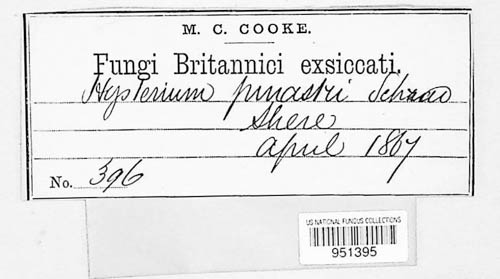 M. C. COOKE.
Fungi Britannici exsiccati.
Hysterium pinastri Schrad
Shere
April 1867
No. 396
US NATIONAL FUNGUS COLLECTIONS
951395